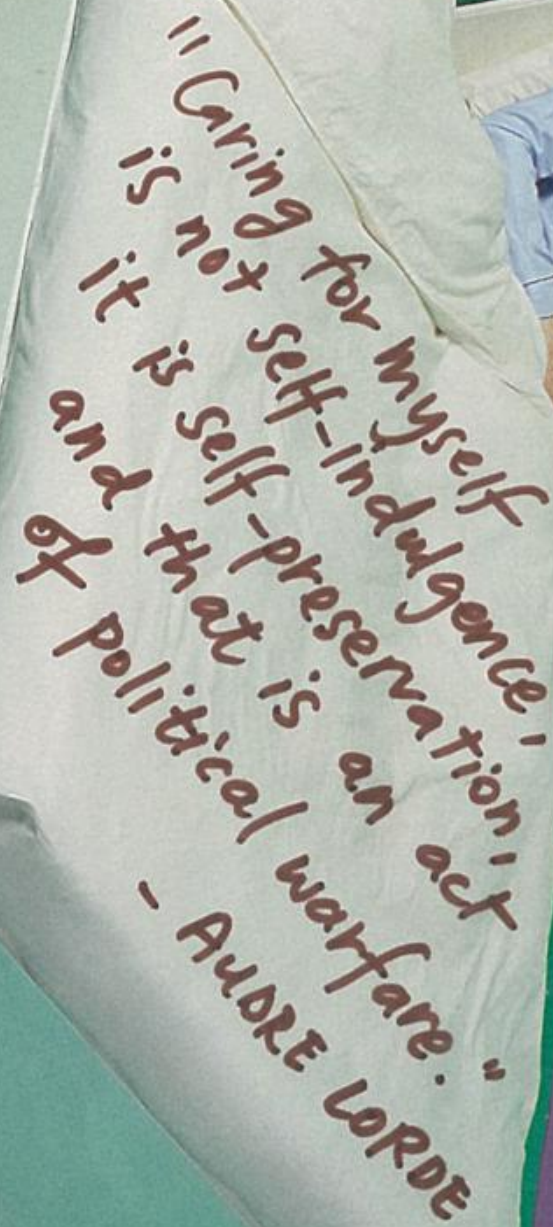 "Caring for myself
is not self-indulgence,
it is self-preservation,
and that is an act
of political warfare."
- AUDRE LORDE